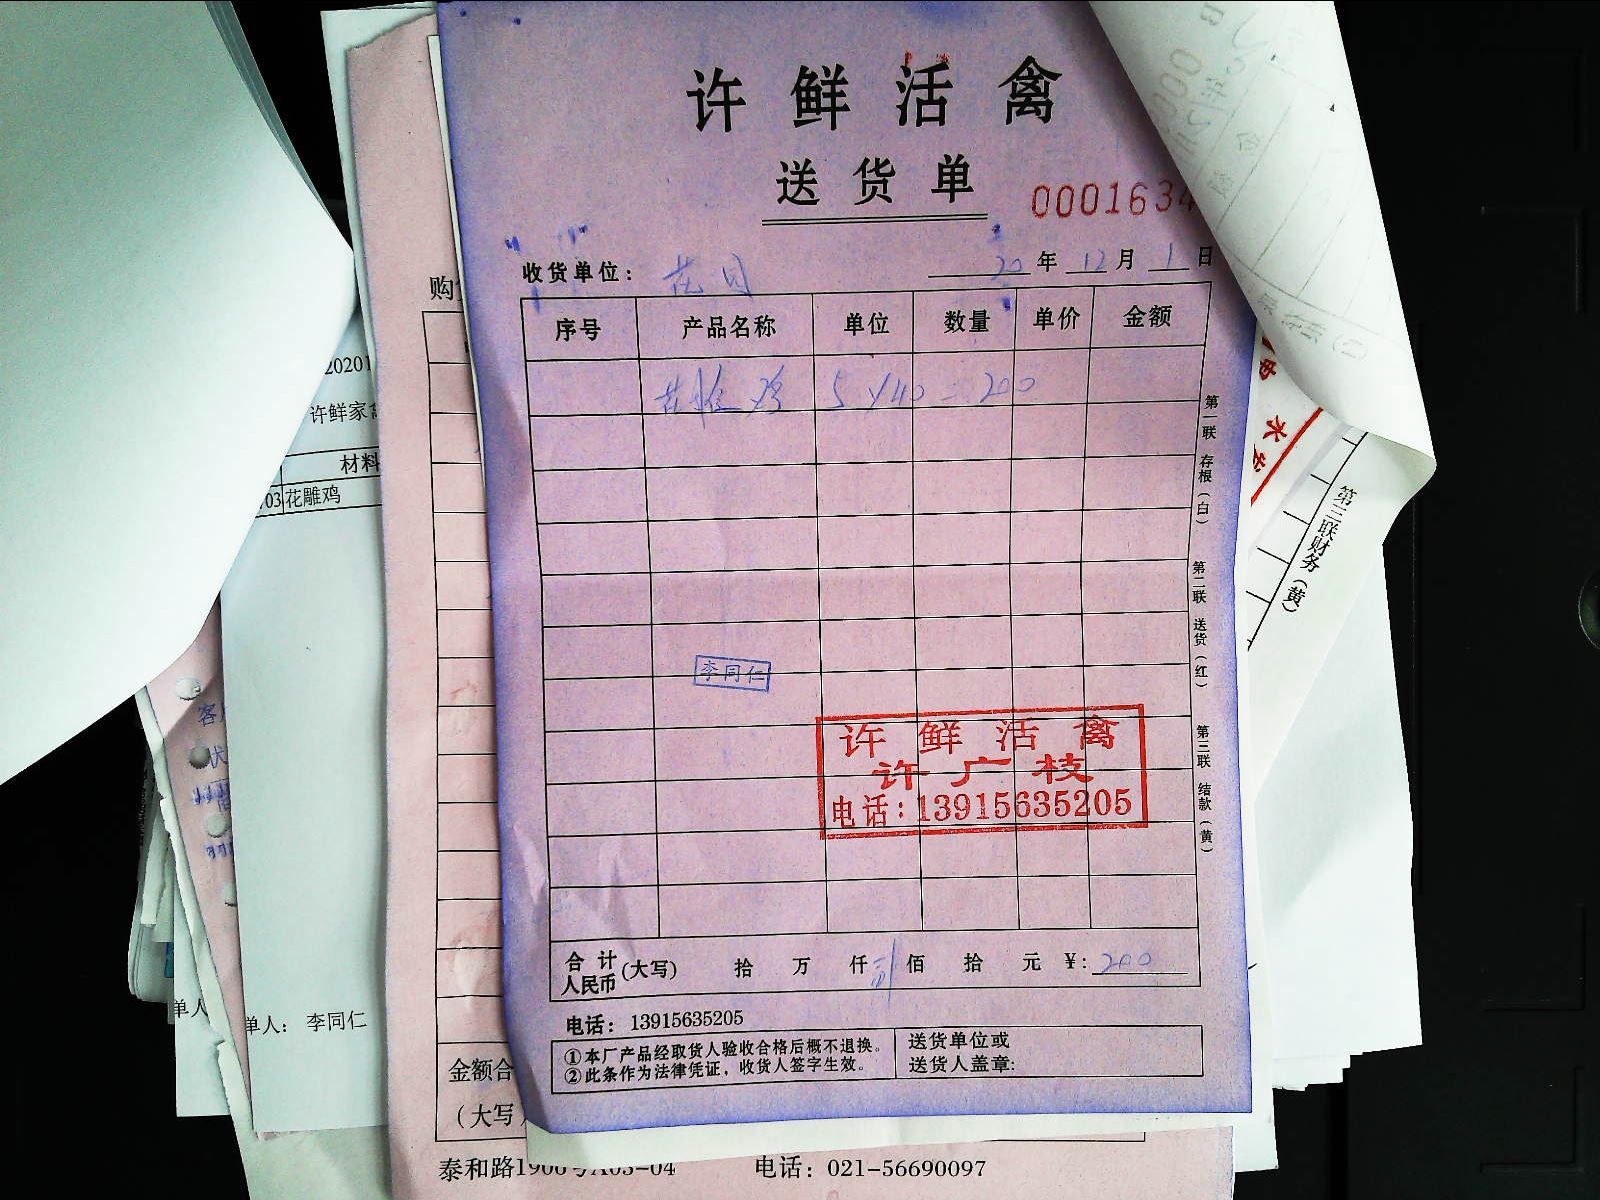 许鲜活禽
送货单
0001634
收货单位： 花月 20年12月1日
序号 产品名称 单位 数量 单价 金额
花雕鸡 5×40=200
李同仁
许鲜活禽
许广枝
电话：13915635205
合计人民币（大写） 拾 万 仟 贰佰 拾 元 ¥：200
电话：13915635205
①本厂产品经取货人验收合格后概不退换。
②此条作为法律凭证，收货人签字生效。
送货单位或
送货人盖章：
第一联 存根（白） 第二联 送货（红） 第三联 结款（黄）
购
20201
许鲜家
材料
03 花雕鸡
单人
单人： 李同仁
金额合
（大写
泰和路1900号A03-04 电话：021-56690097
第三联财务（黄）